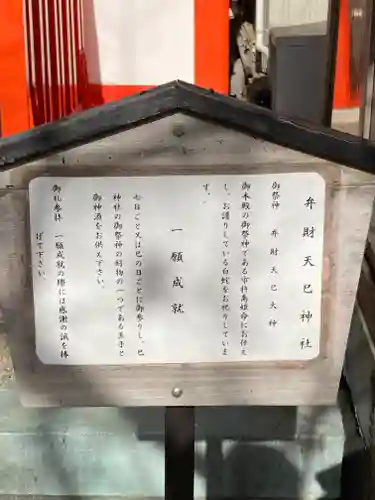 弁財天巳神社
御祭神　弁財天巳大神
御本殿の御祭神である市杵島姫命にお仕え
し、お護りしている白蛇をお祀りしていま
す。
一願成就
七日ごと又は巳の日ごとに御参りし、巳
神社の御祭神の好物の一つである玉子と
御神酒をお供え下さい。
御礼参拝　一願成就の際には感謝の誠を捧
げて下さい。